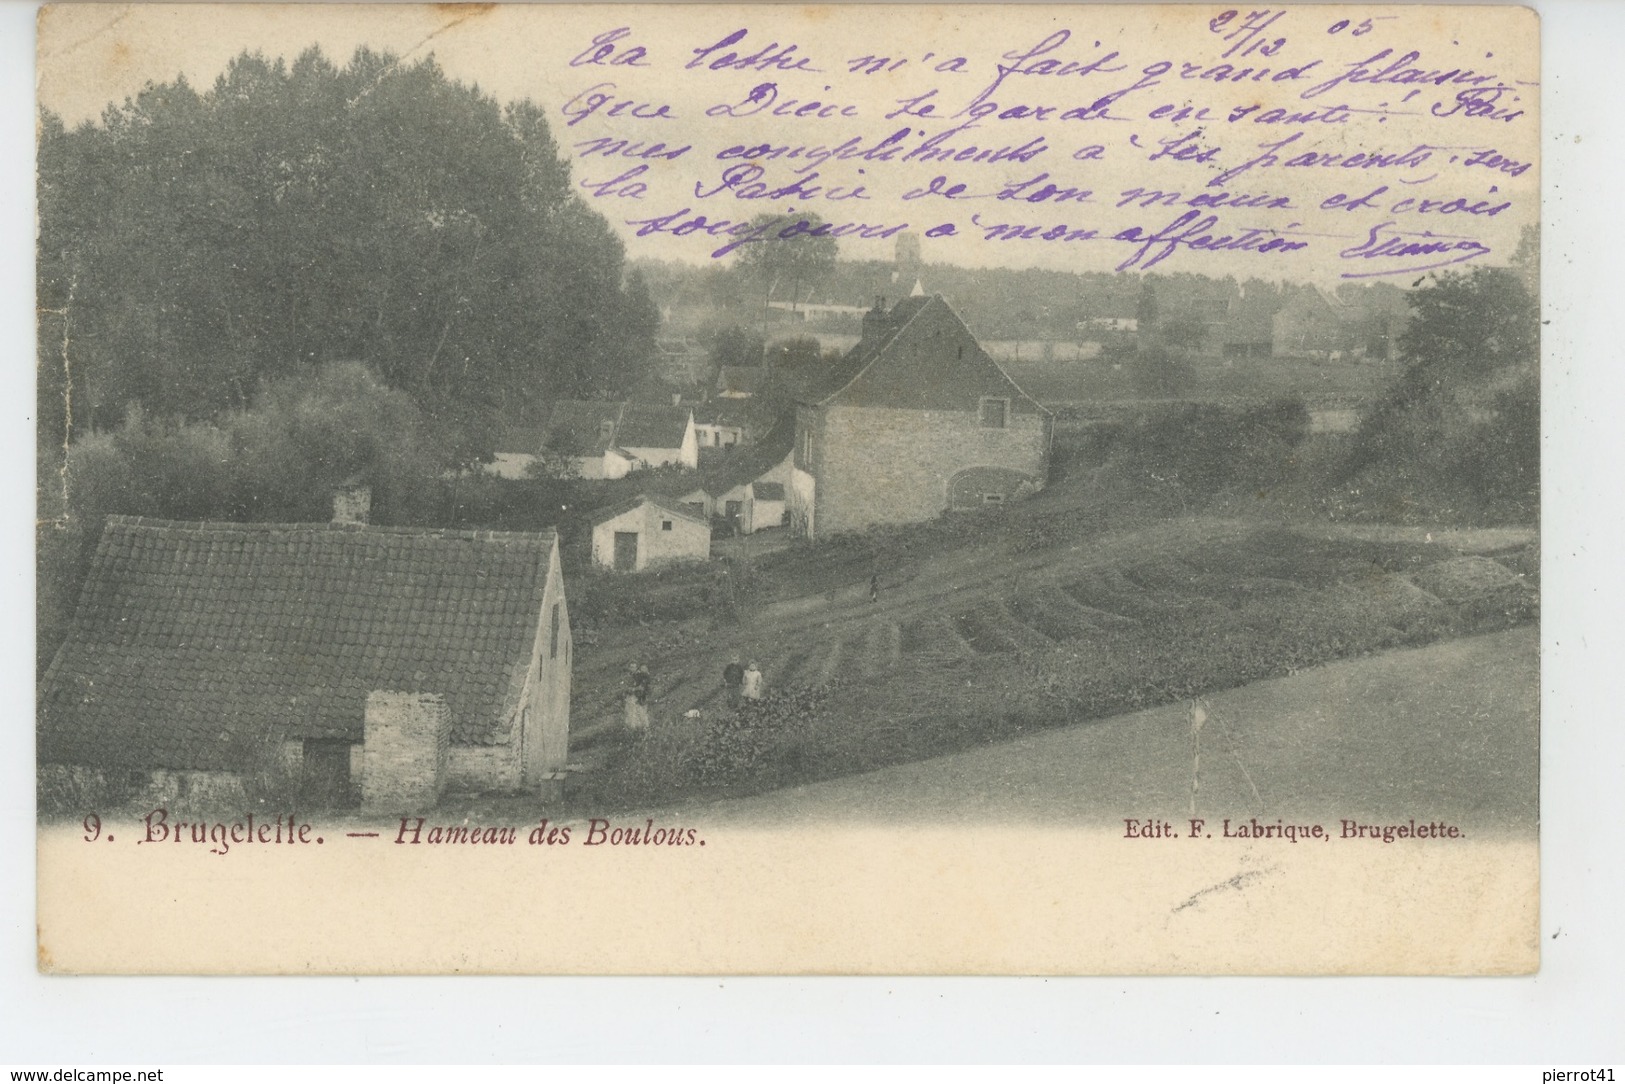 27/12 05
Ta lettre m'a fait grand plaisir.
Que Dieu te garde en santé! Fais
mes compliments à tes parents, sers
la Patrie de ton mieux et crois
toujours à mon affection
9. Brugelette. — Hameau des Boulous.
Edit. F. Labrique, Brugelette.
www.delcampe.net
pierrot41